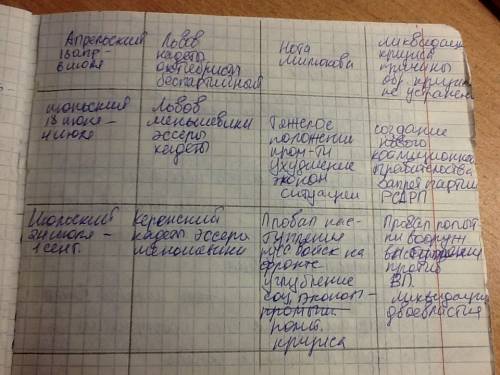 Апрельский
18 апр -
6 июля
Львов
кадеты
октябристы
беспартийный
Нота
Милюкова
ликвидация
кризиса
причины
кризиса
не устранен
июньский
18 июня -
4 июля
Львов
меньшевики
эссеры
кадеты
Тяжелое
положение
пром-ти
ухудшение
эконом
ситуации
создание
нового
коалиционного
правительства
запрет партии
РСДРП
Июльский
24 июля -
1 сент.
Керенский
кадеты эссеры
меньшевики
Провал нас-
тупления
русс войск на
фронте
углубление
соц, эконом -
промышл
полит.
кризиса
Провал попыт-
ки вооруж
выступления
против
ВП.
ликвидация
двоевластия